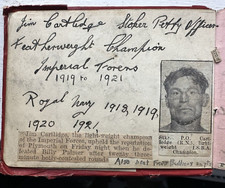 Jim Cartlidge Stoker Petty Officer
Featherweight Champion
Imperial Forces
1919 to 1921
Royal Navy 1918, 1919,
1920 1921
Jim Cartlidge, the light-weight champion
of the Imperial Forces, upheld the reputation
of Plymouth on Friday night when he
defeated Billy Palmer after twenty
P.O. Cart-
lidge (R.N.)
Champion.
Also